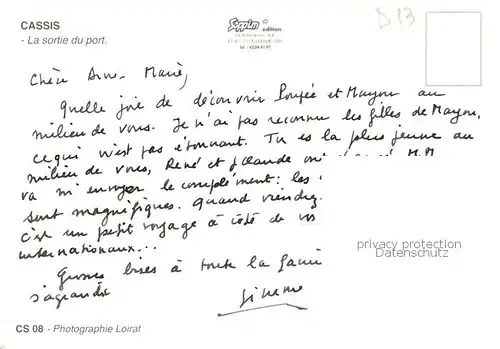 CASSIS
- La sortie du port.
édition
D 13
Chère Anne-Marie,
Quelle joie de découvrir Poupée et Maryou au
milieu de vous. Je n'ai pas reconnu les filles de Maryou,
ce qui n'est pas étonnant. Tu es la plus jeune au
milieu de vous, René et
va m'envoyer le complément : les
sont magnifiques. Quand viendrez
c'est un petit voyage à côté de vos
internationaux...
Grosses bises à toute la famil
s'agrandir
privacy protection
Datenschutz
CS 08 - Photographie Loirat